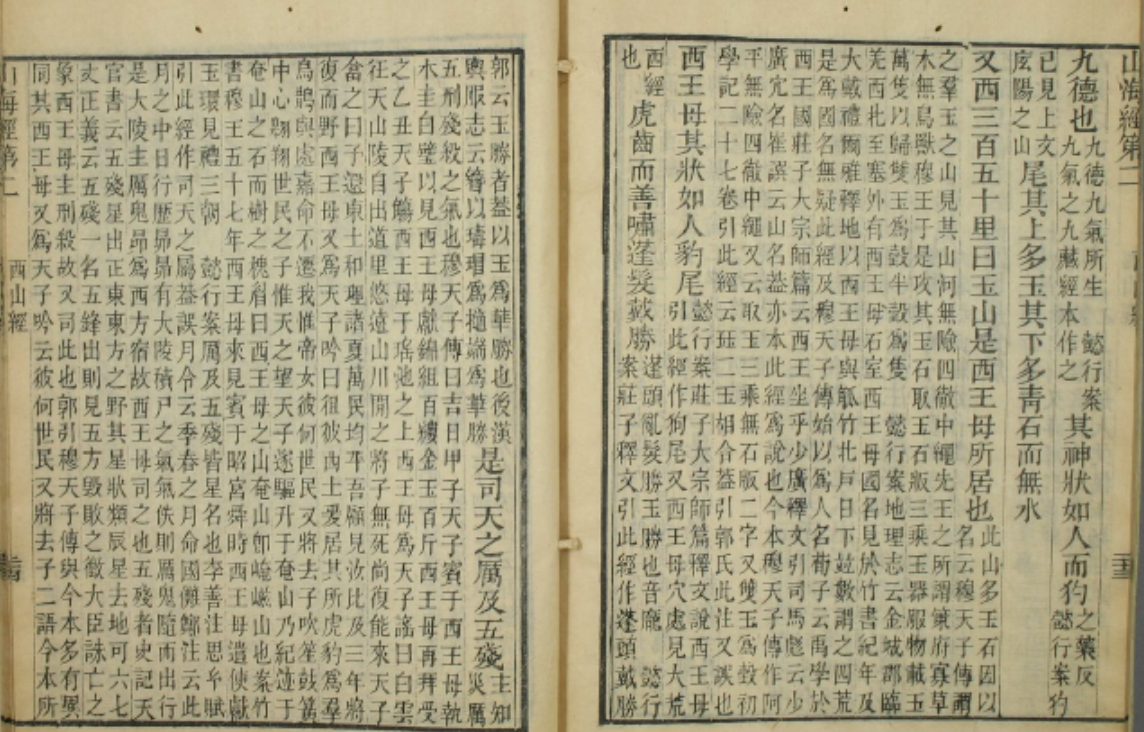 山海經第二
九德也
九德九氣所生 懿行案
九氣之九藏經本作之
其神狀如人而犳
之藥反
懿行案犳
已見上文
底陽之山
尾其上多玉其下多青石而無水
又西三百五十里曰玉山是西王母所居也
此山多玉石因以
名云穆天子傳謂
之羣玉之山見其山河無險四徹中繩先王之所謂策府寡草
木無鳥獸穆王于是攻其玉石取玉石版三乘玉器服物載玉
萬隻以歸雙玉為瑴半瑴為隻 懿行案地理志云金城郡臨
羌西北至塞外有西王母石室西王母國名見於竹書紀年及
大戴禮爾雅釋地以西王母與觚竹北戶日下竝數謂之四荒
是為國名無疑此經及穆天子傳始以為人名荀子云禹學於
西王國莊子大宗師篇云西王坐乎少廣釋文引司馬彪云少
廣穴名崔譔云山名蓋亦本此經為說也今本穆天子傳作阿
平無險四徹中繩又云取玉三乘無石版二字又雙玉為瑴初
學記二十七卷引此經云珏二玉相合蓋引郭氏此注又誤也
西王母其狀如人豹尾
懿行案莊子大宗師篇釋文說西王母
引此經作狗尾又西王母穴處見大荒
西經
也
虎齒而善嘯蓬髮戴勝
蓬頭亂髮勝玉勝也音龐 懿行
案莊子釋文引此經作蓬頭戴勝
郭云玉勝者蓋以玉為華勝也後漢
輿服志云簪以瑇瑁為擿端為華勝
是司天之厲及五殘
主知災厲
五刑殘殺之氣也穆天子傳曰吉日甲子天子賓于西王母執
玄圭白璧以見西王母獻錦組百縷金玉百斤西王母再拜受
之乙丑天子觴西王母于瑤池之上西王母為天子謠曰白雲
在天山陵自出道里悠遠山川間之將子無死尚復能來天子
畣之曰予還東土和理諸夏萬民均平吾顧見汝比及三年將
復而野西王母又為天子吟曰徂彼西土爰居其所虎豹為羣
烏鵲與處嘉命不遷我惟帝女彼何世民又將去子吹笙鼓簧
中心翱翔世民之子惟天之望天子遂驅升于奄山乃紀迹于
奄山之石而樹之槐眉曰西王母之山奄山即崦嵫山也案竹
書穆王五十七年西王母來見賓于昭宮舜時西王母遣使獻
玉環見禮三朝 懿行案厲及五殘皆星名也李善注思玄賦
引此經作司天之屬蓋誤月令云季春之月命國儺鄭注云此
月之中日行歷昴昴有大陵積尸之氣氣佚則厲鬼隨而出行
是大陵主厲鬼昴為西方宿故西王母司之也五殘者史記天
官書云五殘星出正東東方之野其星狀類辰星去地可六七
丈正義云五殘一名五鋒出則見五方毀敗之徵大臣誅亡之
象西王母主刑殺故又司此也郭引穆天子傳與今本多有異
同其西王母又為天子吟云彼何世民又將去子二語今本所
山海經第二 西山經